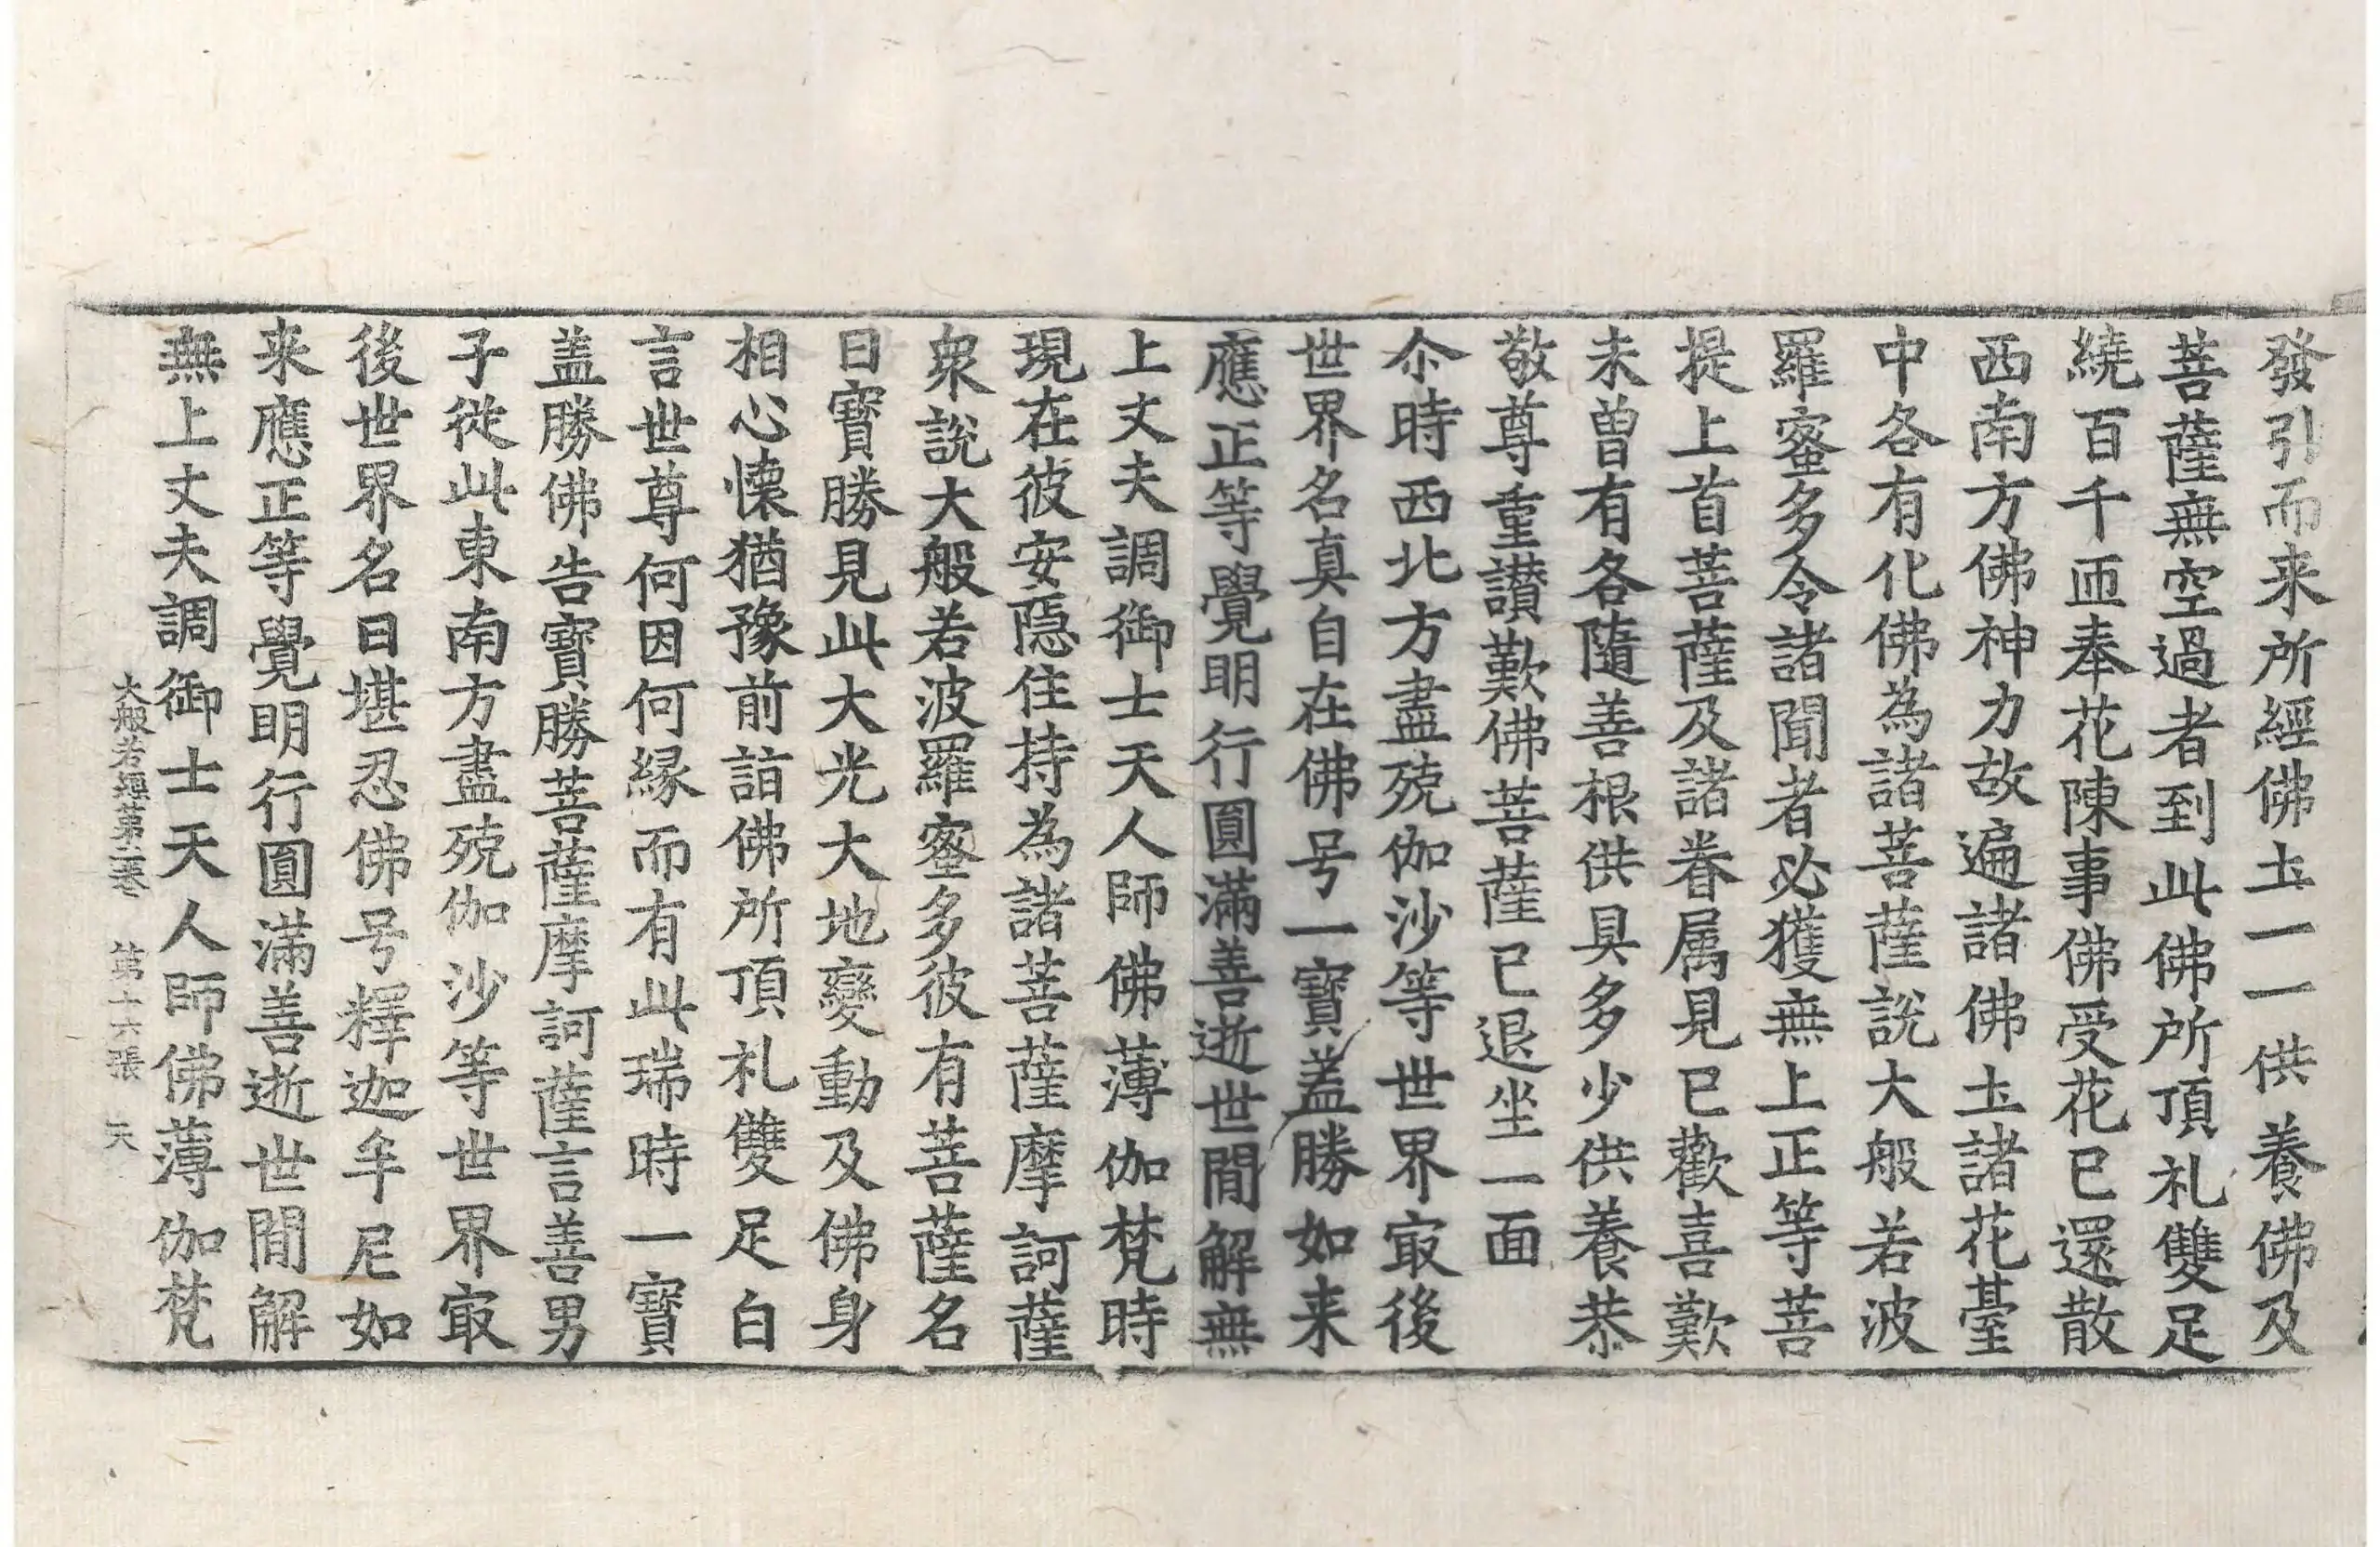 發引而来所經佛土一一供養佛及
菩薩無空過者到此佛所頂礼雙足
繞百千迊奉花陳事佛受花已還散
西南方佛神力故遍諸佛土諸花臺
中各有化佛為諸菩薩說大般若波
羅蜜多令諸聞者必獲無上正等菩
提上首菩薩及諸眷属見已歡喜歎
未曾有各隨善根供具多少供養恭
敬尊重讃歎佛菩薩已退坐一面
尒時西北方盡殑伽沙等世界㝡後
世界名真自在佛号一寳盖勝如来
應正等覺明行圓滿善逝世間解無
上丈夫調御士天人師佛薄伽梵時
現在彼安隱住持為諸菩薩摩訶薩
衆說大般若波羅蜜多彼有菩薩名
曰寳勝見此大光大地變動及佛身
相心懷猶豫前詣佛所頂礼雙足白
言世尊何因何縁而有此瑞時一寳
盖勝佛告寳勝菩薩摩訶薩言善男
子從此東南方盡殑伽沙等世界㝡
後世界名曰堪忍佛号釋迦牟尼如
来應正等覺明行圓滿善逝世間解
無上丈夫調御士天人師佛薄伽梵
大般若經第二卷 第十六張 天